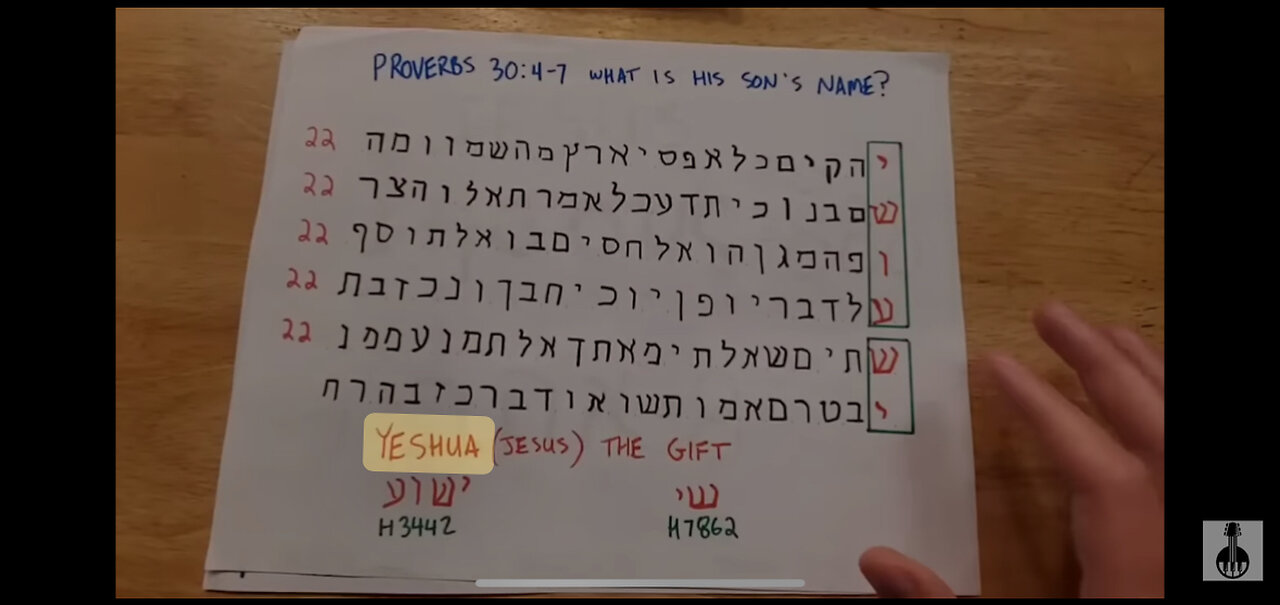 PROVERBS 30:4-7 WHAT IS HIS SON'S NAME?
יהקיםכלאפסיארץמהשמוומה 22
שםבנוכיתדעכלאמרתאלוהצר 22
ופהמגןהואלחסיםבואלתוסף 22
עלדבריופןיוכיחבךונכזבת 22
שתיםשאלתימאתךאלתמנעממנ 22
יבטרםאמותשואודברכזבהרח
YESHUA (JESUS) THE GIFT
ישוע שי
H3442 H7862